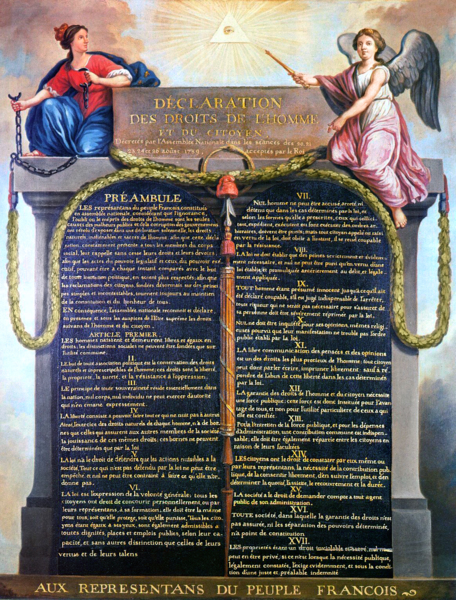 DÉCLARATION
DES DROITS DE L'HOMME
ET DU CITOYEN,
Décrétés par l'Assemblée Nationale dans les séances des 20, 21,
23, 24 et 26 août 1789, acceptés par le Roi
PRÉAMBULE
LES représentans du peuple François, constitués
en assemblée nationale, considérant que l'ignorance,
l'oubli ou le mépris des droits de l'homme sont les seules
causes des malheurs publics et de la corruption des gouvernemens
ont résolu d'exposer dans une déclaration solemnelle, les droits
naturels, inaliénables et sacrés de l'homme: afin que cette décla-
ration, constamment présente à tous les membres du corps
social, leur rappelle sans cesse leurs droits et leurs devoirs:
afin que les actes du pouvoir législatif et ceux du pouvoir exé-
cutif, pouvant être à chaque instant comparés avec le but
de toute institution politique, en soient plus respectés; afin que
les réclamations des citoyens, fondées désormais sur des princi-
pes simples et incontestables, tournent toujours au maintien
de la constitution et du bonheur de tous.
EN conséquence, l'assemblée nationale reconnoit et déclare,
en présence et sous les auspices de l'Être suprême les droits
suivans de l'homme et du citoyen.
ARTICLE PREMIER.
LES hommes naissent et demeurent libres et égaux en
droits; les distinctions sociales ne peuvent être fondées que sur
l'utilité commune.
II.
LE but de toute association politique est la conservation des droits
naturels et imprescriptibles de l'homme; ces droits sont la liberté,
la propriété, la sureté, et la résistance à l'oppression.
III.
LE principe de toute souveraineté réside essentiellement dans
la nation, nul corps, nul individu ne peut exercer d'autorité
qui n'en émane expressément.
IV.
LA liberté consiste à pouvoir faire tout ce qui ne nuit pas à autrui
Ainsi, l'exercice des droits naturels de chaque homme, n'a de bor-
nes que celles qui assurent aux autres membres de la société
la jouissance de ces mêmes droits; ces bornes ne peuvent
être déterminées que par la loi.
V.
LA loi n'a le droit de défendre que les actions nuisibles à la
société. Tout ce qui n'est pas défendu par la loi ne peut être
empêché, et nul ne peut être contraint à faire ce qu'elle n'or-
donne pas.
VI.
LA loi est l'expression de la volonté générale; tous les
citoyens ont droit de concourir personnellement, ou par
leurs représentans, à sa formation; elle doit être la même
pour tous, soit qu'elle protege, soit qu'elle punisse. Tous les cito-
yens étant égaux à ses yeux, sont également admissibles à
toutes dignités, places et emplois publics, selon leur ca-
pacité, et sans autres distinction que celles de leurs
vertus et de leurs talens
VII.
NUL homme ne peut être accusé, arrêté, ni
détenu que dans les cas déterminés par la loi, et
selon les formes qu'elle a prescrites, ceux qui sollici-
tent, expédient, exécutent ou font exécuter des ordres ar-
bitraires, doivent être punis; mais tout citoyen appelé ou saisi
en vertu de la loi, doit obéir à l'instant, il se rend coupable
par la résistance.
VIII.
LA loi ne doit établir que des peines strictement et évidem-
ment nécessaires, et nul ne peut être puni qu'en vertu d'une
loi établie et promulguée antérieurement au délit, et légale-
ment appliquée.
IX.
TOUT homme étant présumé innocent jusqu'à ce qu'il ait
été déclaré coupable, s'il est jugé indispensable de l'arrêter,
toute rigueur qui ne serait pas nécessaire pour s'assurer de
sa personne doit être sévèrement réprimée par la loi.
X.
NUL ne doit être inquiété pour ses opinions, mêmes religi-
euses pourvu que leur manifestation ne trouble pas l'ordre
public établi par la loi.
XI.
LA libre communication des pensées et des opinions
est un des droits les plus précieux de l'homme; tout citoyen
peut donc parler, écrire, imprimer librement, sauf à ré-
pondre de l'abus de cette liberté dans les cas déterminés
par la loi.
XII.
LA garantie des droits de l'homme et du citoyen nécessite
une force publique; cette force est donc instituée pour l'avan-
tage de tous, et non pour l'utilité particuliere de ceux à qui
elle est confiée.
XIII.
POUR l'entretien de la force publique, et pour les dépenses
d'administration, une contribution commune est indispen-
sable; elle doit être également répartie entre les citoyens en
raison de leurs facultés.
XIV.
LES citoyens ont le droit de constater par eux même ou
par leurs représentans, la nécessité de la contribution pub-
lique, de la consentir librement, d'en suivre l'emploi, et d'en
déterminer la quotité, l'assiette, le recouvrement et la durée.
XV.
LA société a le droit de demander compte à tout agent
public de son administration.
XVI.
TOUTE société, dans laquelle la garantie des droits n'est
pas assurée, ni les séparation des pouvoirs déterminée,
n'a point de constitution
XVII.
LES propriétés étant un droit inviolable et sacré, nul ne
peut en être privé, si ce n'est lorsque la nécessité publique,
légalement constatée, l'exige évidemment, et sous la condi-
tion d'une juste et préalable indemnité
AUX REPRESENTANS DU PEUPLE FRANCOIS